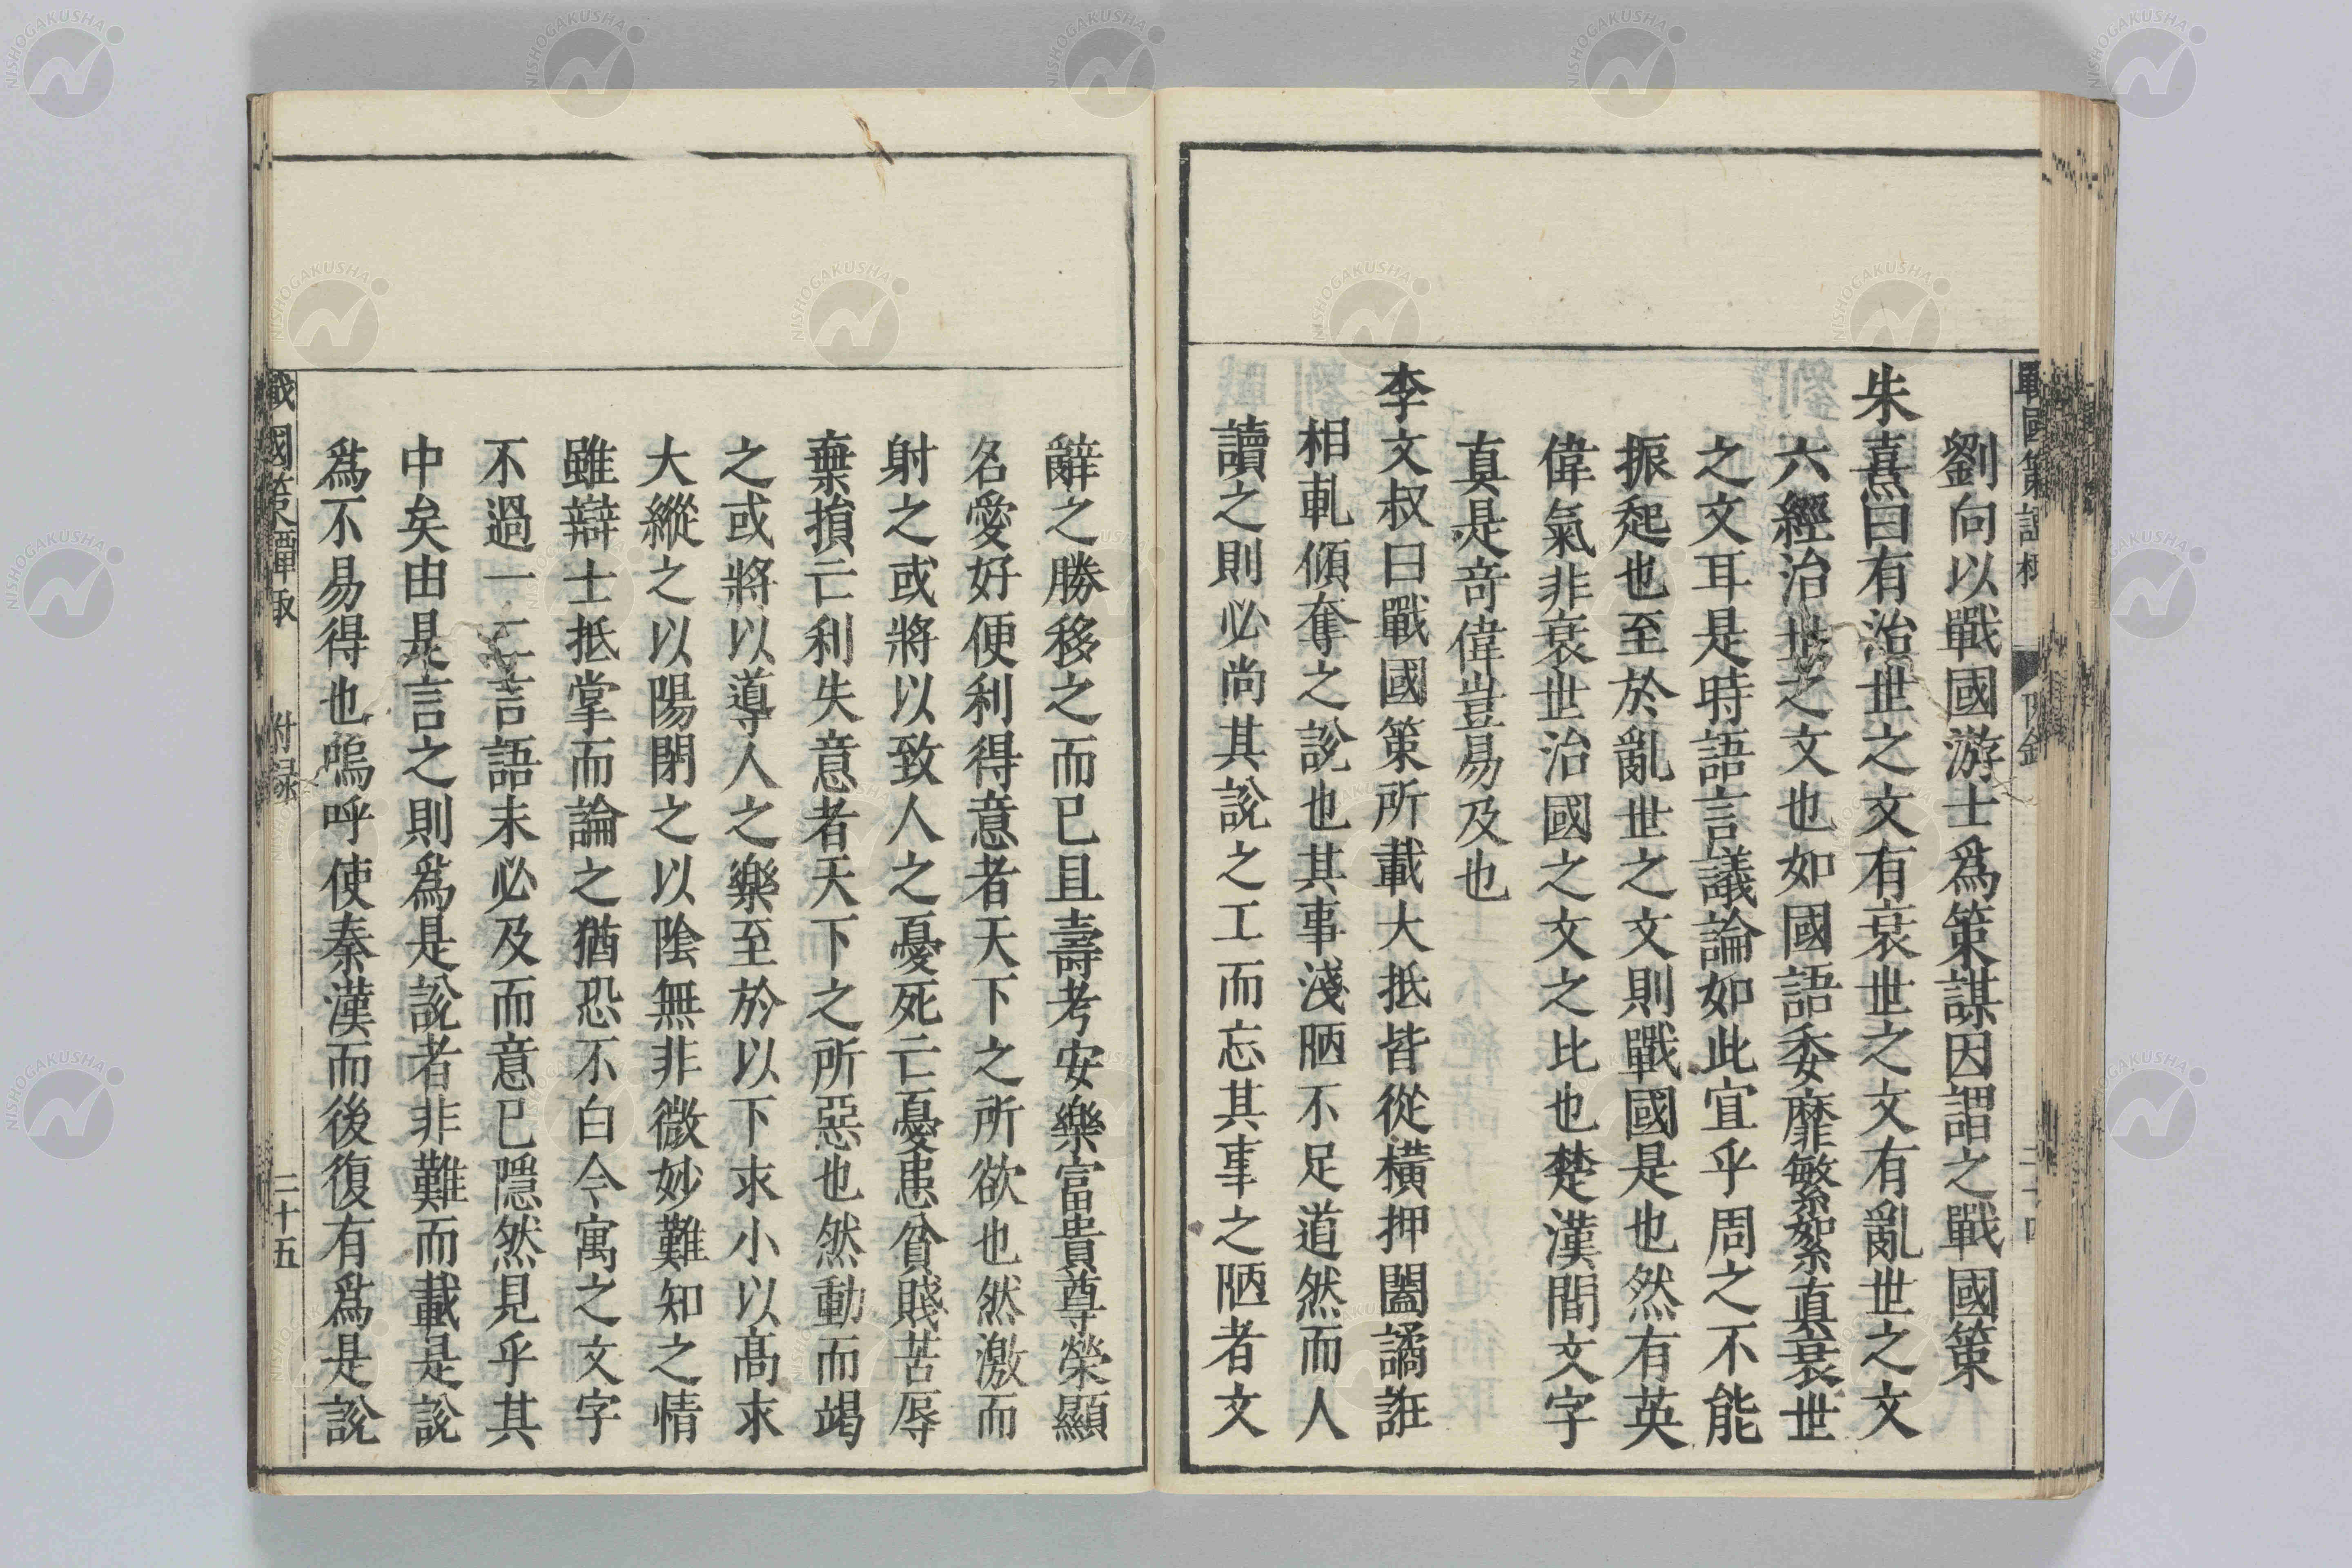 劉向以戰國游士爲策謀因謂之戰國策
朱熹曰有治世之文有衰世之文有亂世之文
六經治世之文也如國語委靡繁絮真衰世
之文耳是時語言議論如此宜乎周之不能
振起也至於亂世之文則戰國是也然有英
偉氣非衰世治國之文之比也楚漢間文字
真是竒偉豈易及也
李文叔曰戰國策所載大抵皆從橫押闔譎誑
相軋傾奪之說也其事淺陋不足道然而人
讀之則必尚其說之工而忘其事之陋者文
辭之勝移之而已且壽考安樂富貴尊榮顯
名愛好便利得意者天下之所欲也然激而
射之或將以致人之憂死亡憂患貧賤苦辱
棄損亡利失意者天下之所惡也然動而竭
之或將以導人之樂至於以下求小以髙求
大縱之以陽閉之以陰無非微妙難知之情
雖辯士抵掌而論之猶恐不白今寓之文字
不過一二言語未必及而意已隱然見乎其
中矣由是言之則爲是說者非難而載是說
爲不易得也嗚呼使秦漢而後復有爲是說
戰國策譚棷 附録 二十五
NISHOGAKUSHA